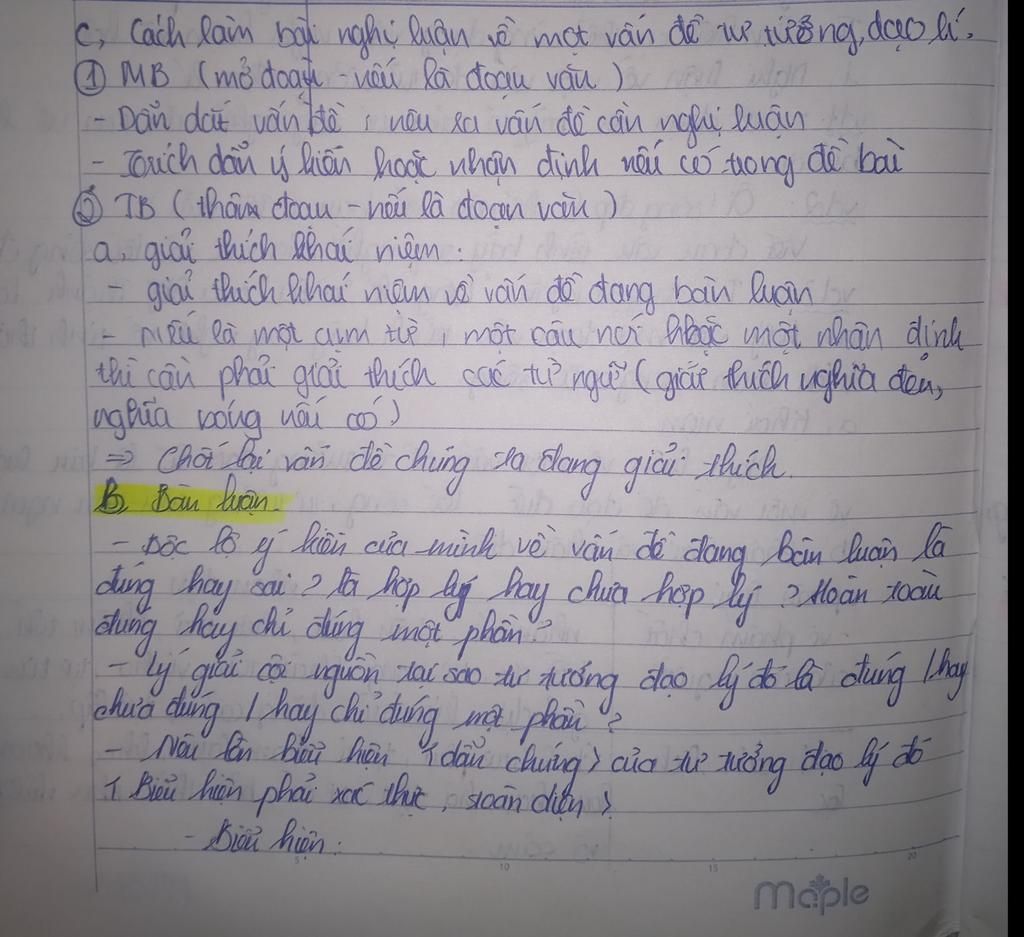 c, Cách làm bài nghị luận về một vấn đề tư tưởng, đạo lí.
① MB (mở đoạn - nếu là đoạn văn)
- Dẫn dắt vấn đề, nêu ra vấn đề cần nghị luận
- Trích dẫn ý kiến hoặc nhận định nếu có trong đề bài
② TB (thân đoạn - nếu là đoạn văn)
a, giải thích khái niệm:
- giải thích khái niệm về vấn đề đang bàn luận
- Nếu là một cụm từ, một câu nói hoặc một nhận định
thì cần phải giải thích các từ ngữ (giải thích nghĩa đen,
nghĩa bóng nếu có)
=> Chốt lại vấn đề chúng ta đang giải thích.
B, Bàn luận.
- Bộc lộ ý kiến của mình về vấn đề đang bàn luận là
đúng hay sai? là hợp lý hay chưa hợp lý? Hoàn toàn
đúng hay chỉ đúng một phần?
- Lý giải cội nguồn tại sao tư tưởng đạo lý đó là đúng / hay
chưa đúng / hay chỉ đúng một phần?
- Nêu lên biểu hiện <dẫn chứng> của tư tưởng đạo lý đó
< Biểu hiện phải xác thực, toàn diện >
- Biểu hiện:
5 10 15 20
maple